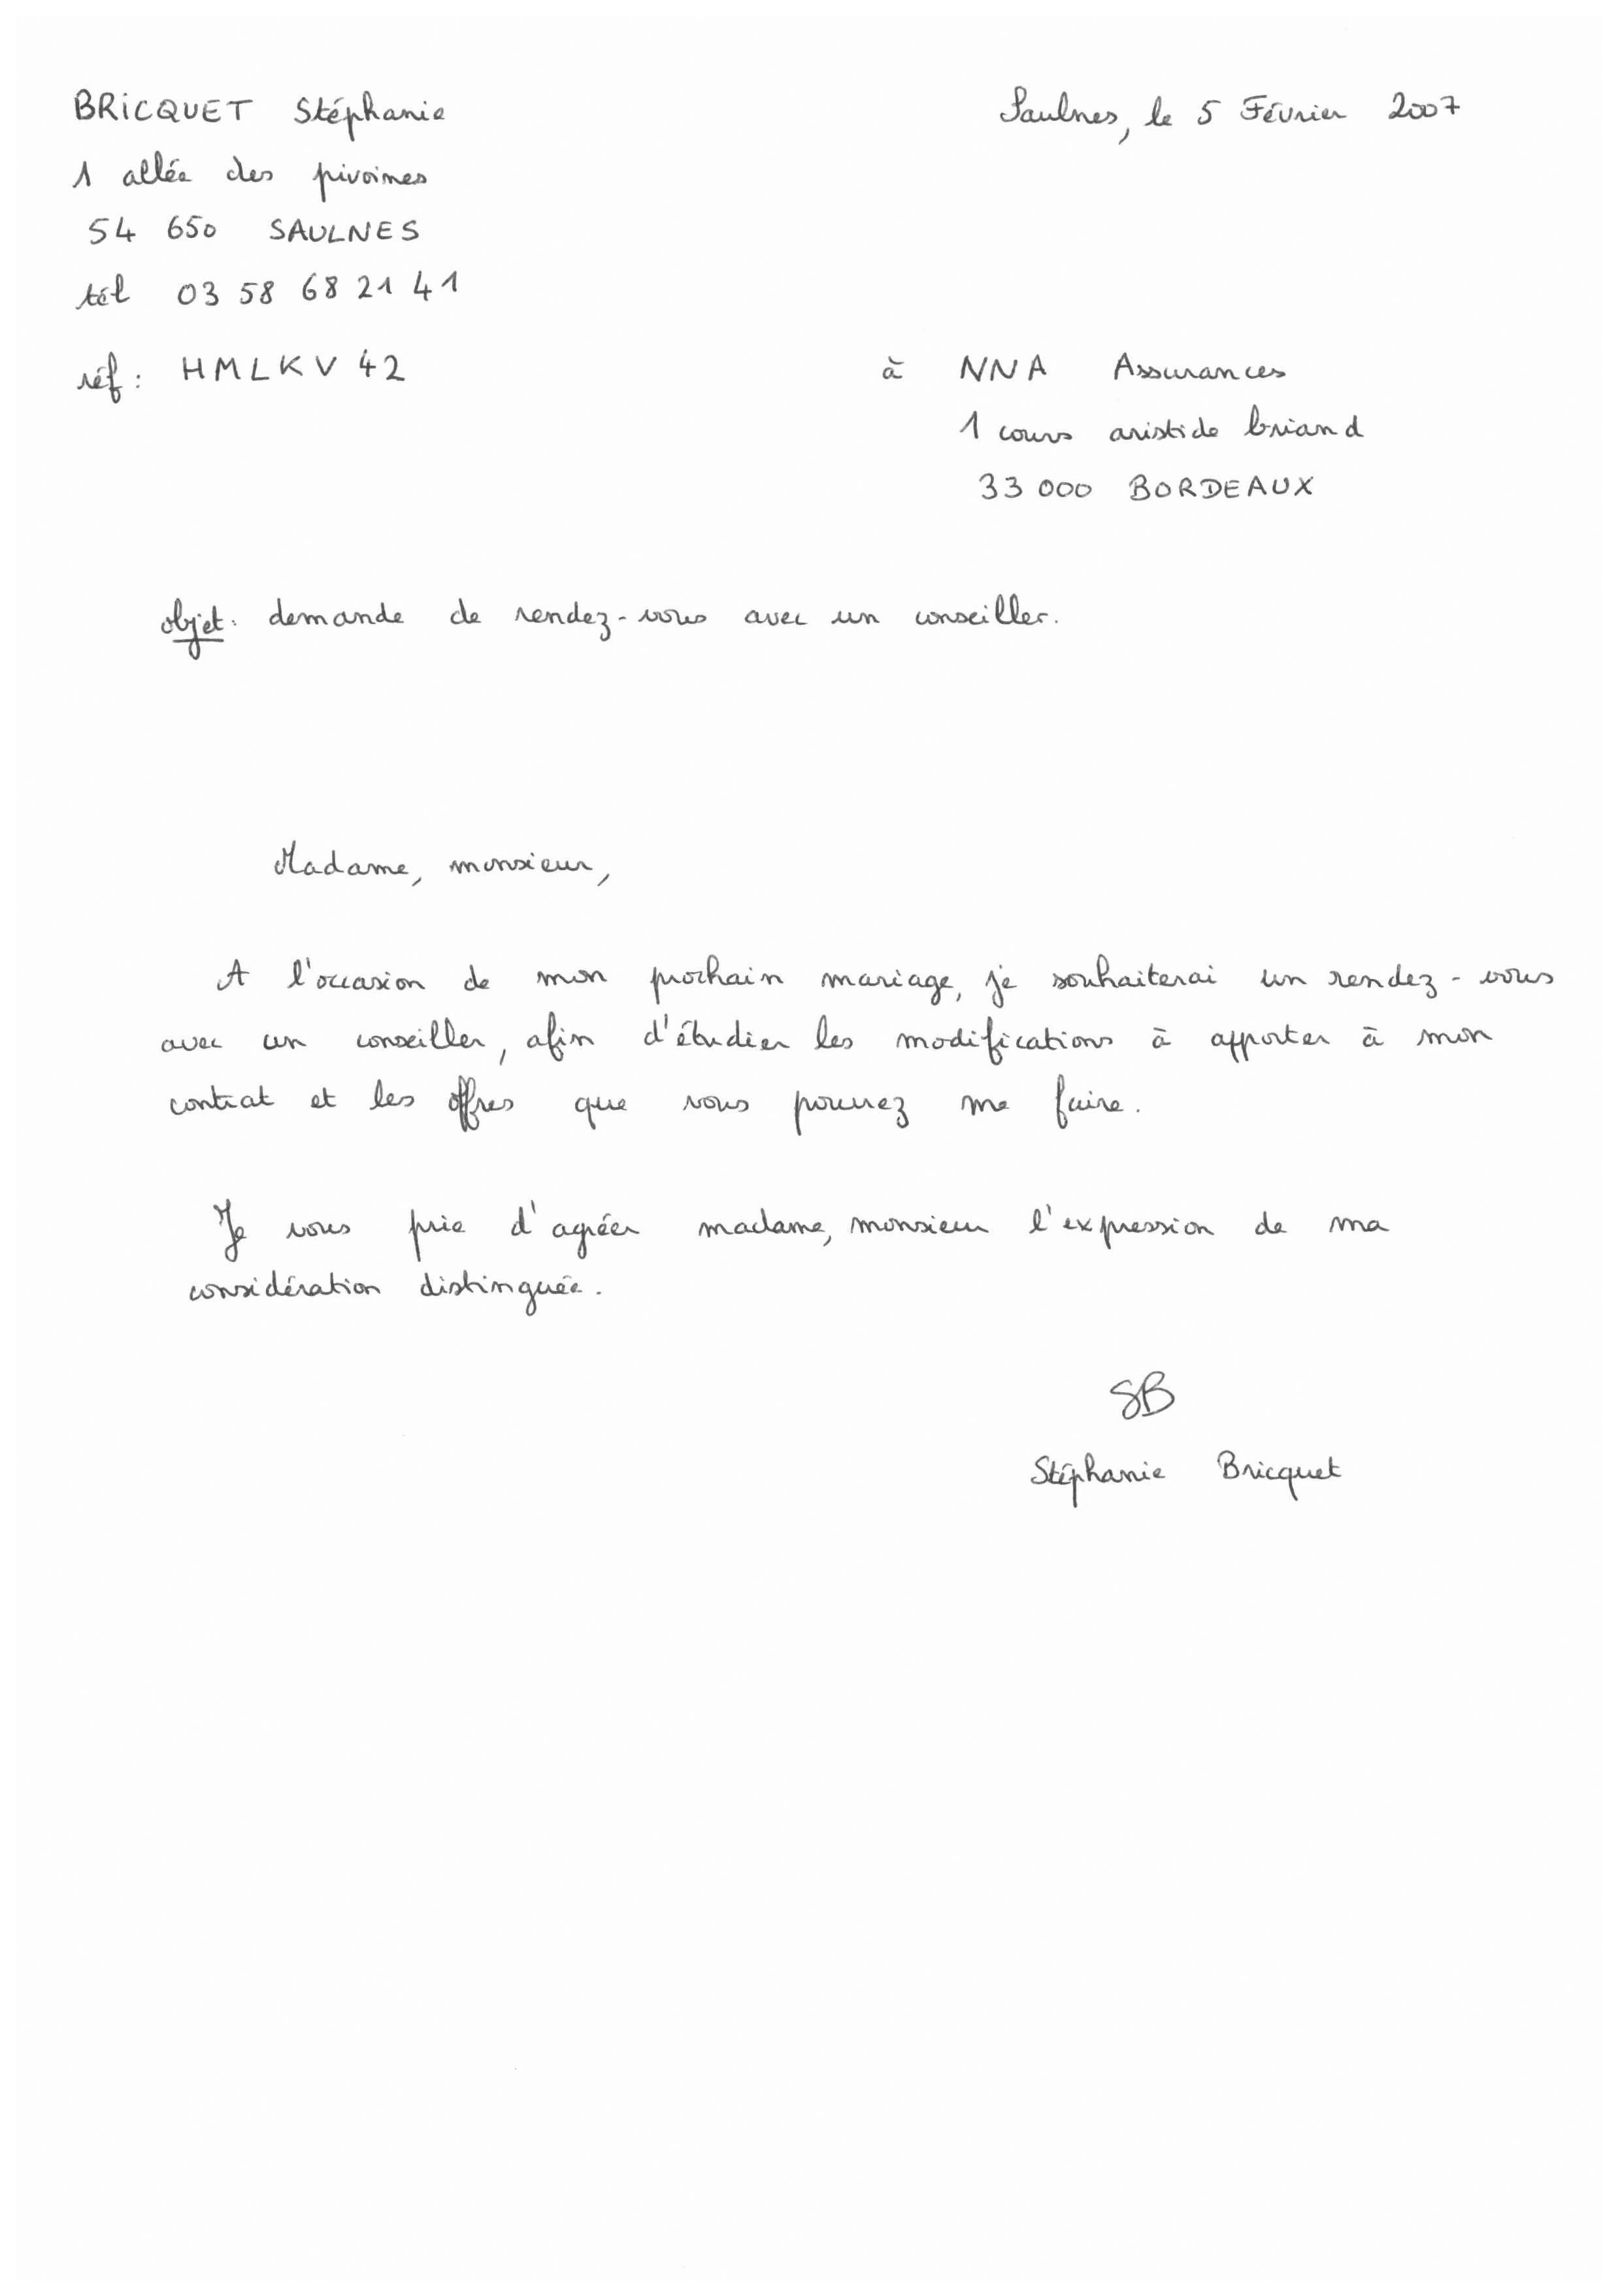 BRICQUET Stéphanie
Saulnes, le 5 Février 2007
1 allée des pivoines
54 650 SAULNES
tél 03 58 68 21 41
réf : HMLKV 42
à NNA Assurances
1 cours aristide briand
33 000 BORDEAUX
objet : demande de rendez-vous avec un conseiller.
Madame, monsieur,
A l'occasion de mon prochain mariage, je souhaiterai un rendez-vous
avec un conseiller, afin d'étudier les modifications à apporter à mon
contrat et les offres que vous pourrez me faire.
Je vous prie d'agréer madame, monsieur l'expression de ma
considération distinguée.
SB
Stéphanie Bricquet